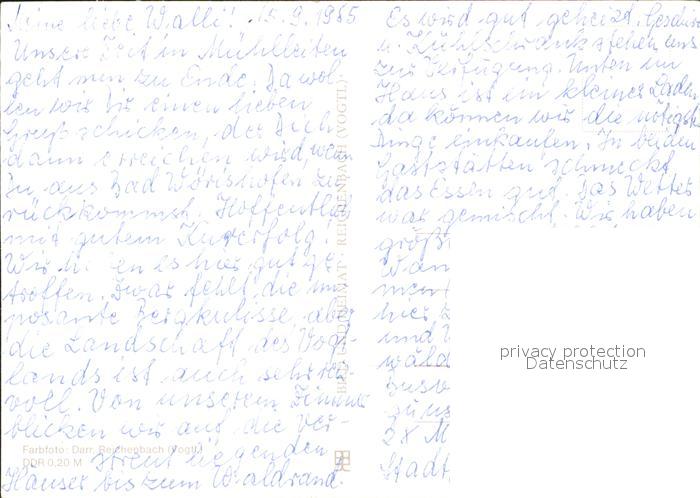 Meine liebe Walli! 15.9.1985
Unsere Zeit in Mühlleiten
geht nun zu Ende. Da wol-
len wir Dir einen lieben
Gruß schicken, der Dich
dann erreichen wird, wenn
Du aus Bad Wörishofen zu
rückkommst. Hoffentlich
mit gutem Kurerfolg!
Wir haben es hier gut ge-
troffen. Zwar fehlt die im
posante Bergkulisse, aber
die Landschaft des Vogt-
lands ist auch sehr reiz-
voll. Von unserem Zimmer
blicken wir auf die Ver-
streut liegenden
Häuser bis zum Waldrand.
Farbfoto: Darr, Reichenbach (Vogtl.)
DDR 0,20 M
BILD UND HEIMAT REICHENBACH (VOGTL)
Es wird gut geheizt. Geschirr
u. Kühlschrank stehen uns
zur Verfügung. Unten im
Haus ist ein kleiner Laden,
da können wir die nötigsten
Dinge einkaufen. In beiden
Gaststätten schmeckt
das Essen gut. Das Wetter
war gemischt. Wir haben
größ
Wan
men
hier z
und
wäld
Zusa
zu un
2x M
Stadt
privacy protection
Datenschutz